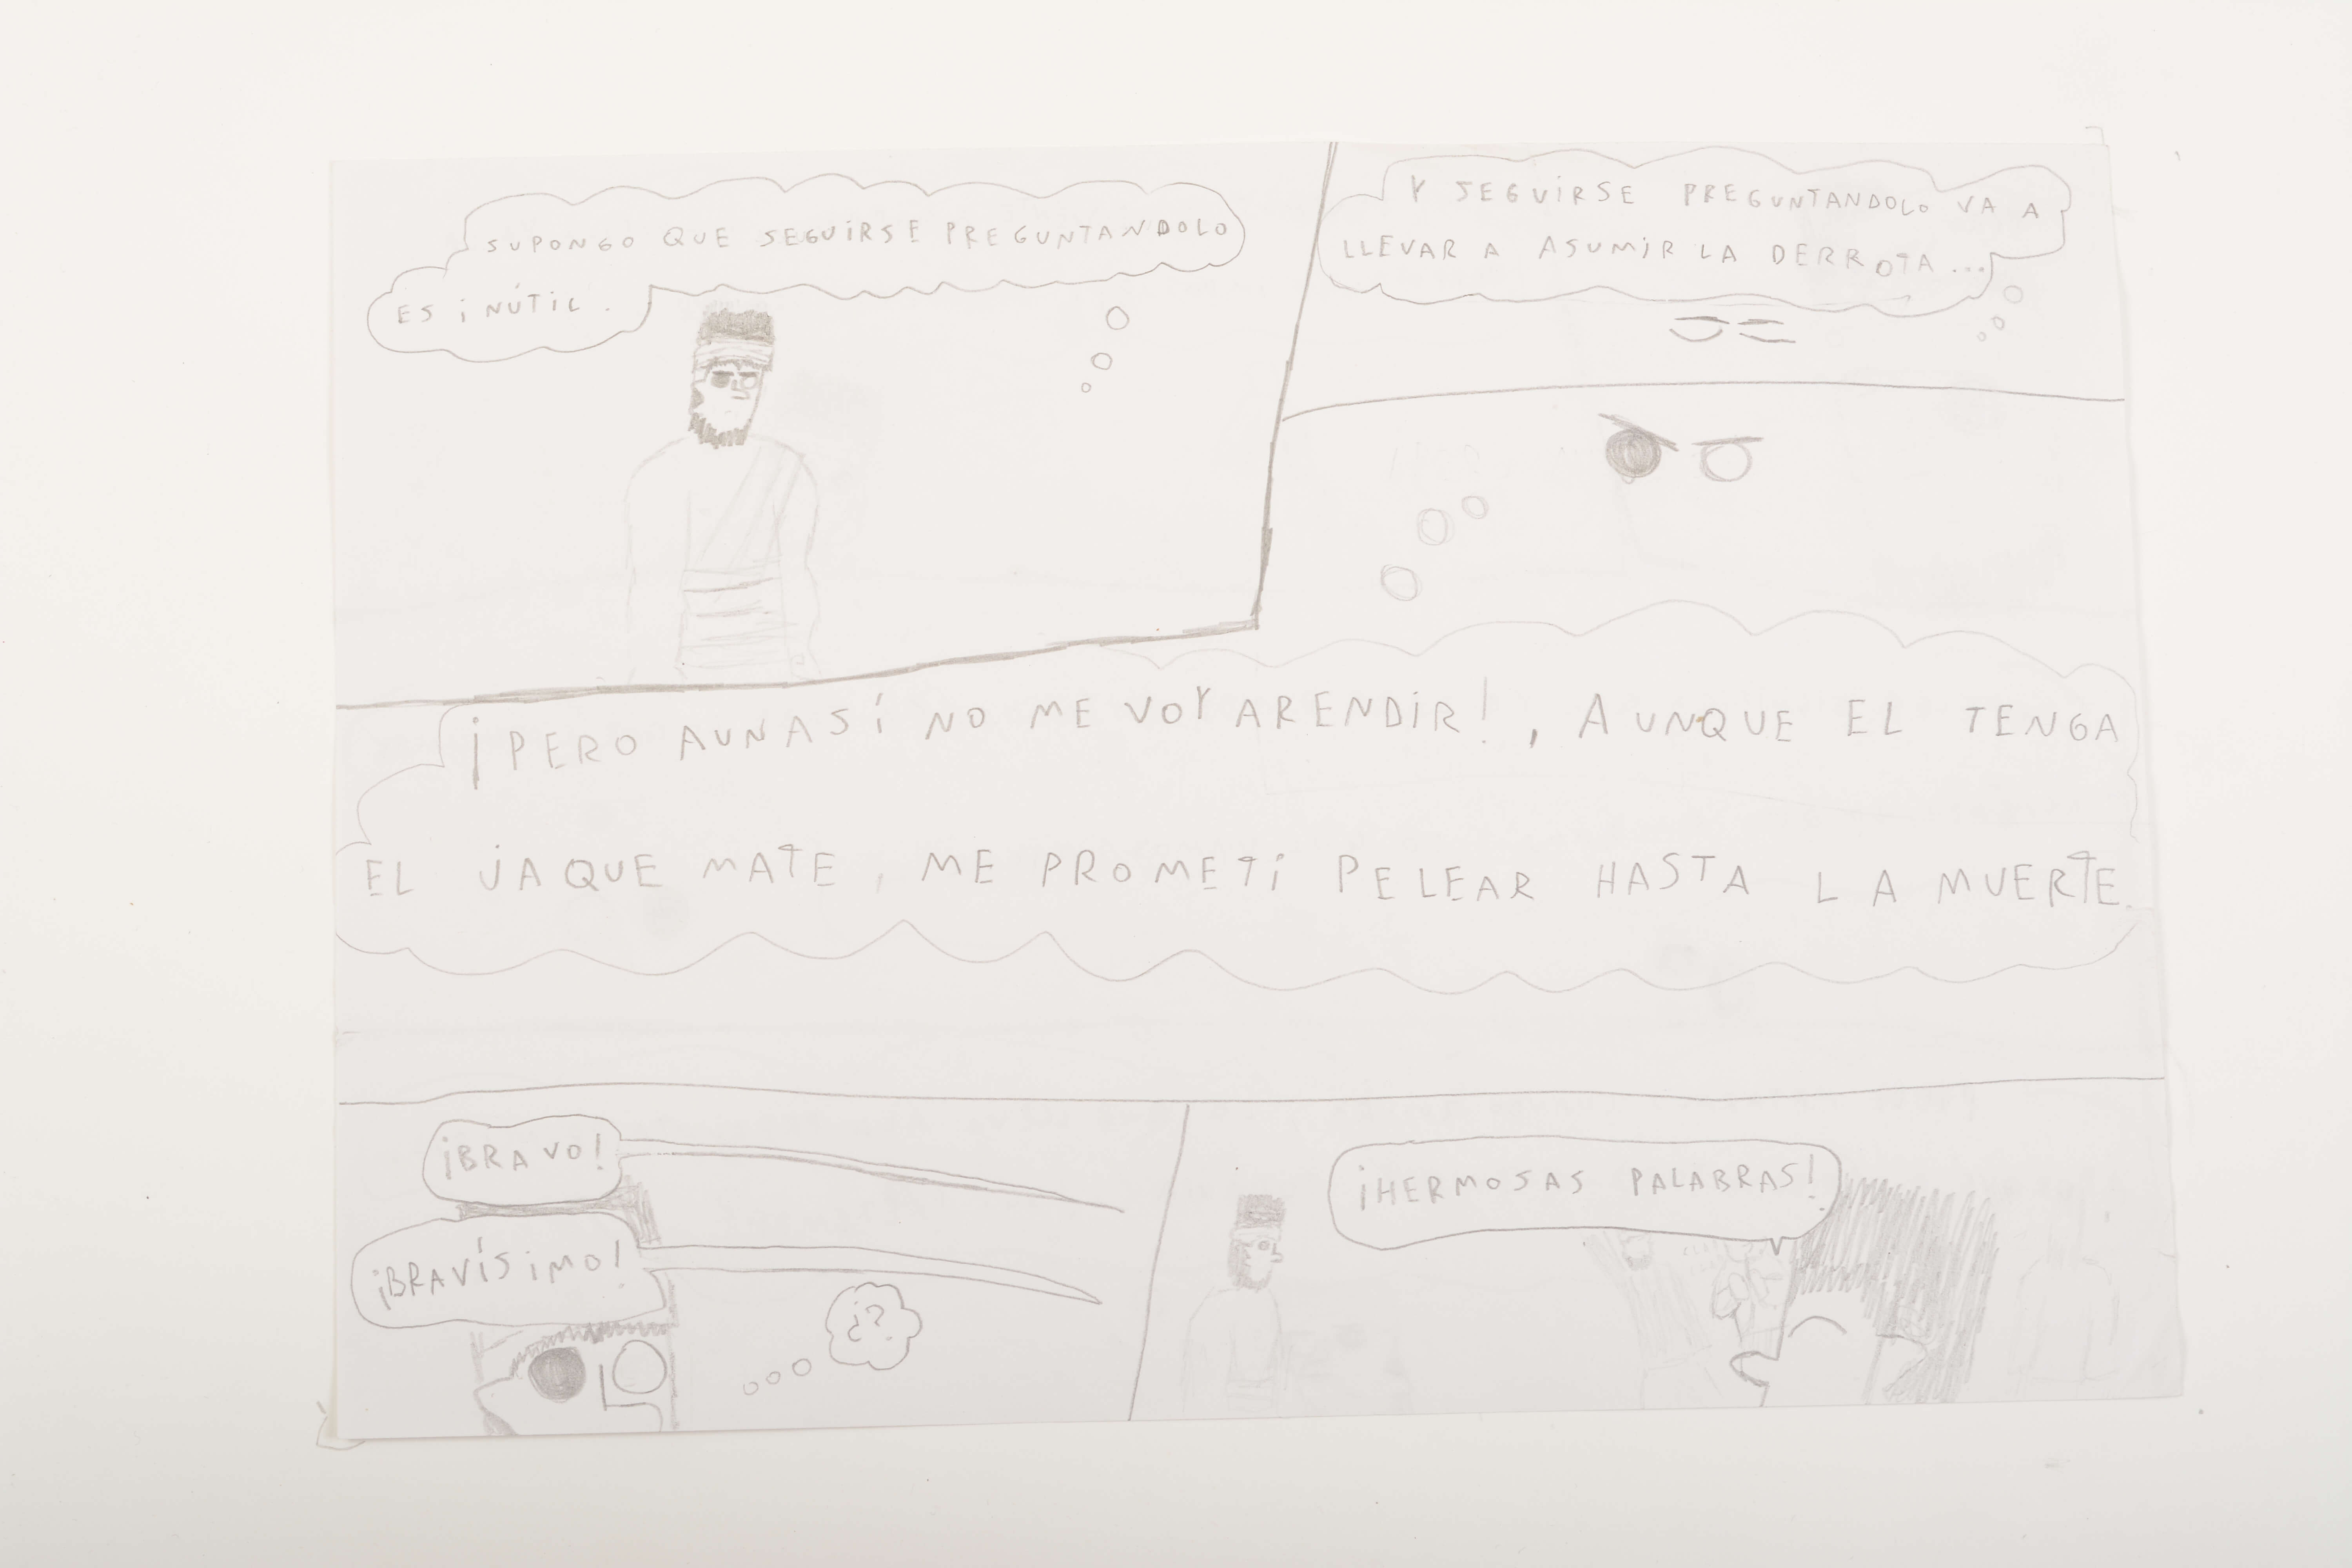 SUPONGO QUE SEGUIRSE PREGUNTANDOLO
ES INÚTIL.
Y SEGUIRSE PREGUNTANDOLO VA A
LLEVAR A ASUMIR LA DERROTA...
¡PERO AUNASÍ NO ME VOY ARENDIR!, AUNQUE EL TENGA
EL JAQUE MATE, ME PROMETI PELEAR HASTA LA MUERTE.
¡BRAVO!
¡BRAVÍSIMO!
¿?
¡HERMOSAS PALABRAS!